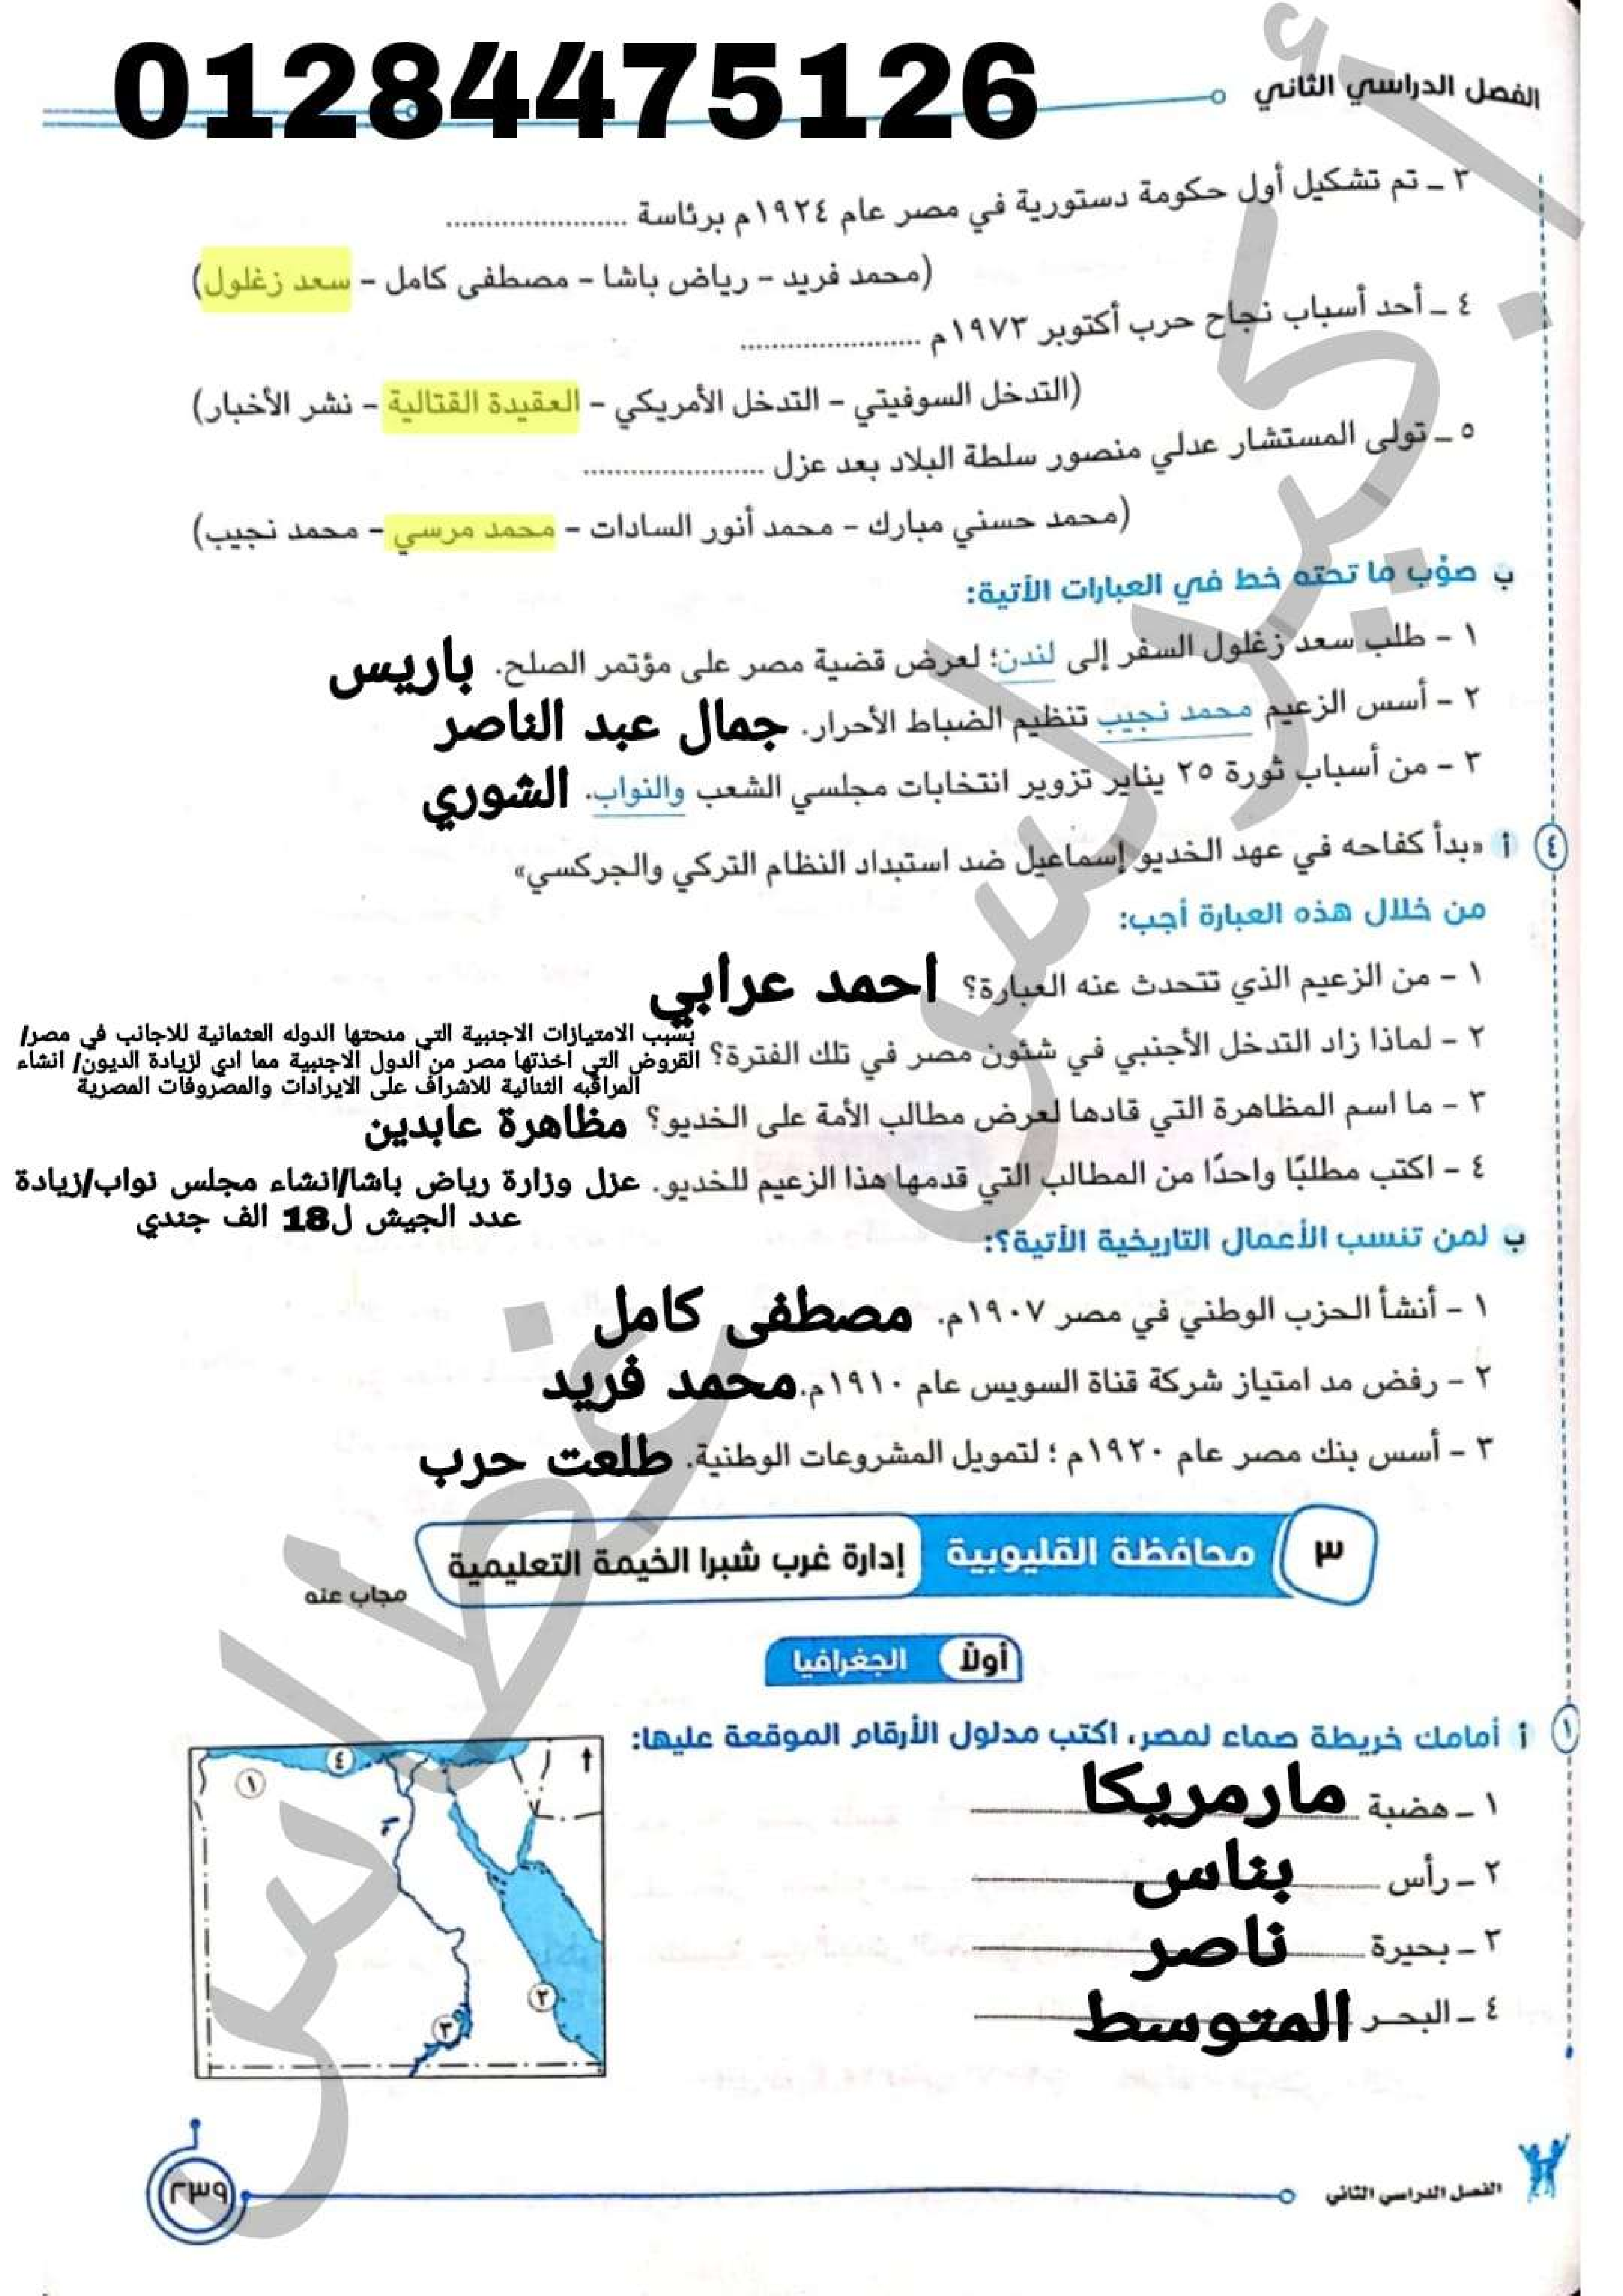 01284475126
الفصل الدراسي الثاني
٣ ـ تم تشكيل أول حكومة دستورية في مصر عام ١٩٢٤م برئاسة .......................
(محمد فريد – رياض باشا – مصطفى كامل – سعد زغلول)
٤ ـ أحد أسباب نجاح حرب أكتوبر ١٩٧٣م .......................
(التدخل السوفيتي – التدخل الأمريكي – العقيدة القتالية – نشر الأخبار)
٥ ـ تولى المستشار عدلي منصور سلطة البلاد بعد عزل .......................
(محمد حسني مبارك – محمد أنور السادات – محمد مرسي – محمد نجيب)
ب صوّب ما تحته خط في العبارات الآتية:
١ – طلب سعد زغلول السفر إلى لندن؛ لعرض قضية مصر على مؤتمر الصلح. باريس
٢ – أسس الزعيم محمد نجيب تنظيم الضباط الأحرار. جمال عبد الناصر
٣ – من أسباب ثورة ٢٥ يناير تزوير انتخابات مجلسي الشعب والنواب. الشوري
٤ أ «بدأ كفاحه في عهد الخديو إسماعيل ضد استبداد النظام التركي والجركسي»
من خلال هذه العبارة أجب:
١ – من الزعيم الذي تتحدث عنه العبارة؟ احمد عرابي
٢ – لماذا زاد التدخل الأجنبي في شئون مصر في تلك الفترة؟
بسبب الامتيازات الاجنبية التي منحتها الدوله العثمانية للاجانب في مصر/
القروض التي اخذتها مصر من الدول الاجنبية مما ادي لزيادة الديون/ انشاء
المراقبه الثنائية للاشراف على الايرادات والمصروفات المصرية
٣ – ما اسم المظاهرة التي قادها لعرض مطالب الأمة على الخديو؟ مظاهرة عابدين
٤ – اكتب مطلبًا واحدًا من المطالب التي قدمها هذا الزعيم للخديو. عزل وزارة رياض باشا/انشاء مجلس نواب/زيادة
عدد الجيش ل18 الف جندي
ب لمن تنسب الأعمال التاريخية الآتية؟:
١ – أنشأ الحزب الوطني في مصر ١٩٠٧م. مصطفى كامل
٢ – رفض مد امتياز شركة قناة السويس عام ١٩١٠م. محمد فريد
٣ – أسس بنك مصر عام ١٩٢٠م ؛ لتمويل المشروعات الوطنية. طلعت حرب
٣ محافظة القليوبية إدارة غرب شبرا الخيمة التعليمية
مجاب عنه
أولاً الجغرافيا
١ أ أمامك خريطة صماء لمصر، اكتب مدلول الأرقام الموقعة عليها:
١ ـ هضبة مارمريكا
٢ ـ رأس بناس
٣ ـ بحيرة ناصر
٤ ـ البحر المتوسط
٤
١
٢
٣
أ. كيرلس غطاس
الفصل الدراسي الثاني
٢٣٩